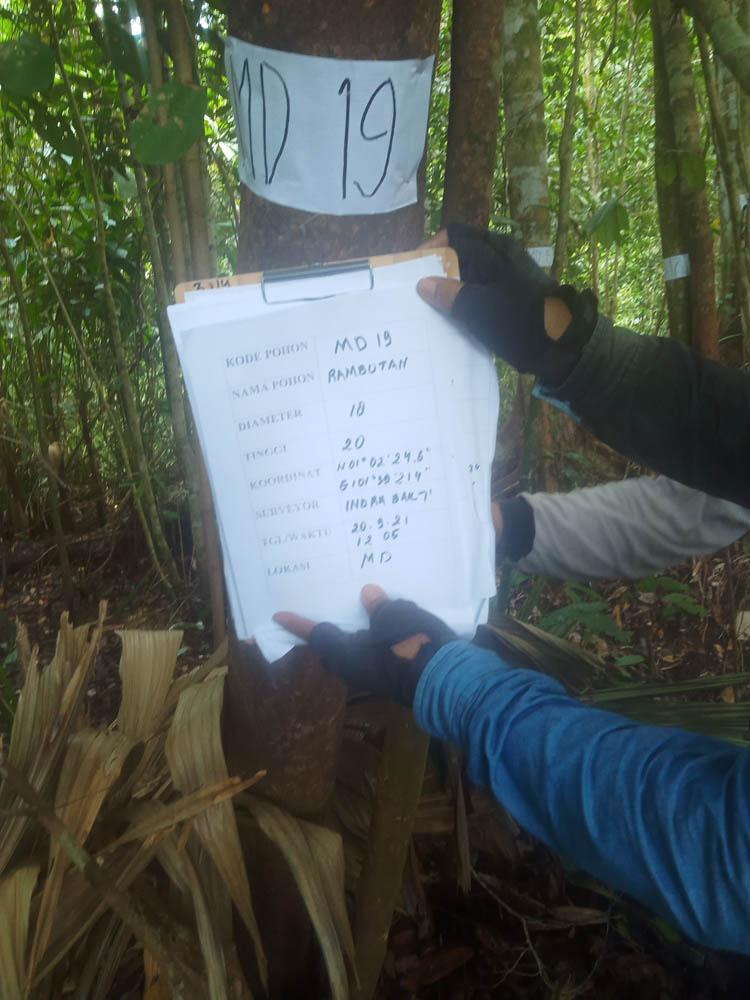 MD 19
KODE POHON MD 19
NAMA POHON RAMBUTAN
DIAMETER 18
TINGGI 20
KOORDINAT N 01° 02' 24.6"
E 101° 39' 214"
SURVEYOR INDRA BAKTI
TGL/WAKTU 20.9.21
12 05
LOKASI MD